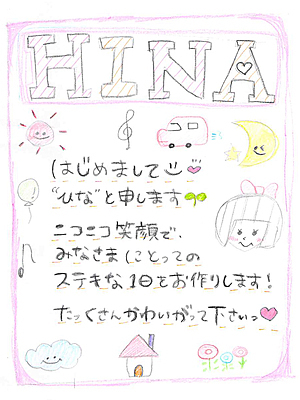 HINA
はじめまして
"ひな"と申します
ニコニコ笑顔で、
みなさまにとっての
ステキな1日をお作りします!
たっくさんかわいがって下さいっ